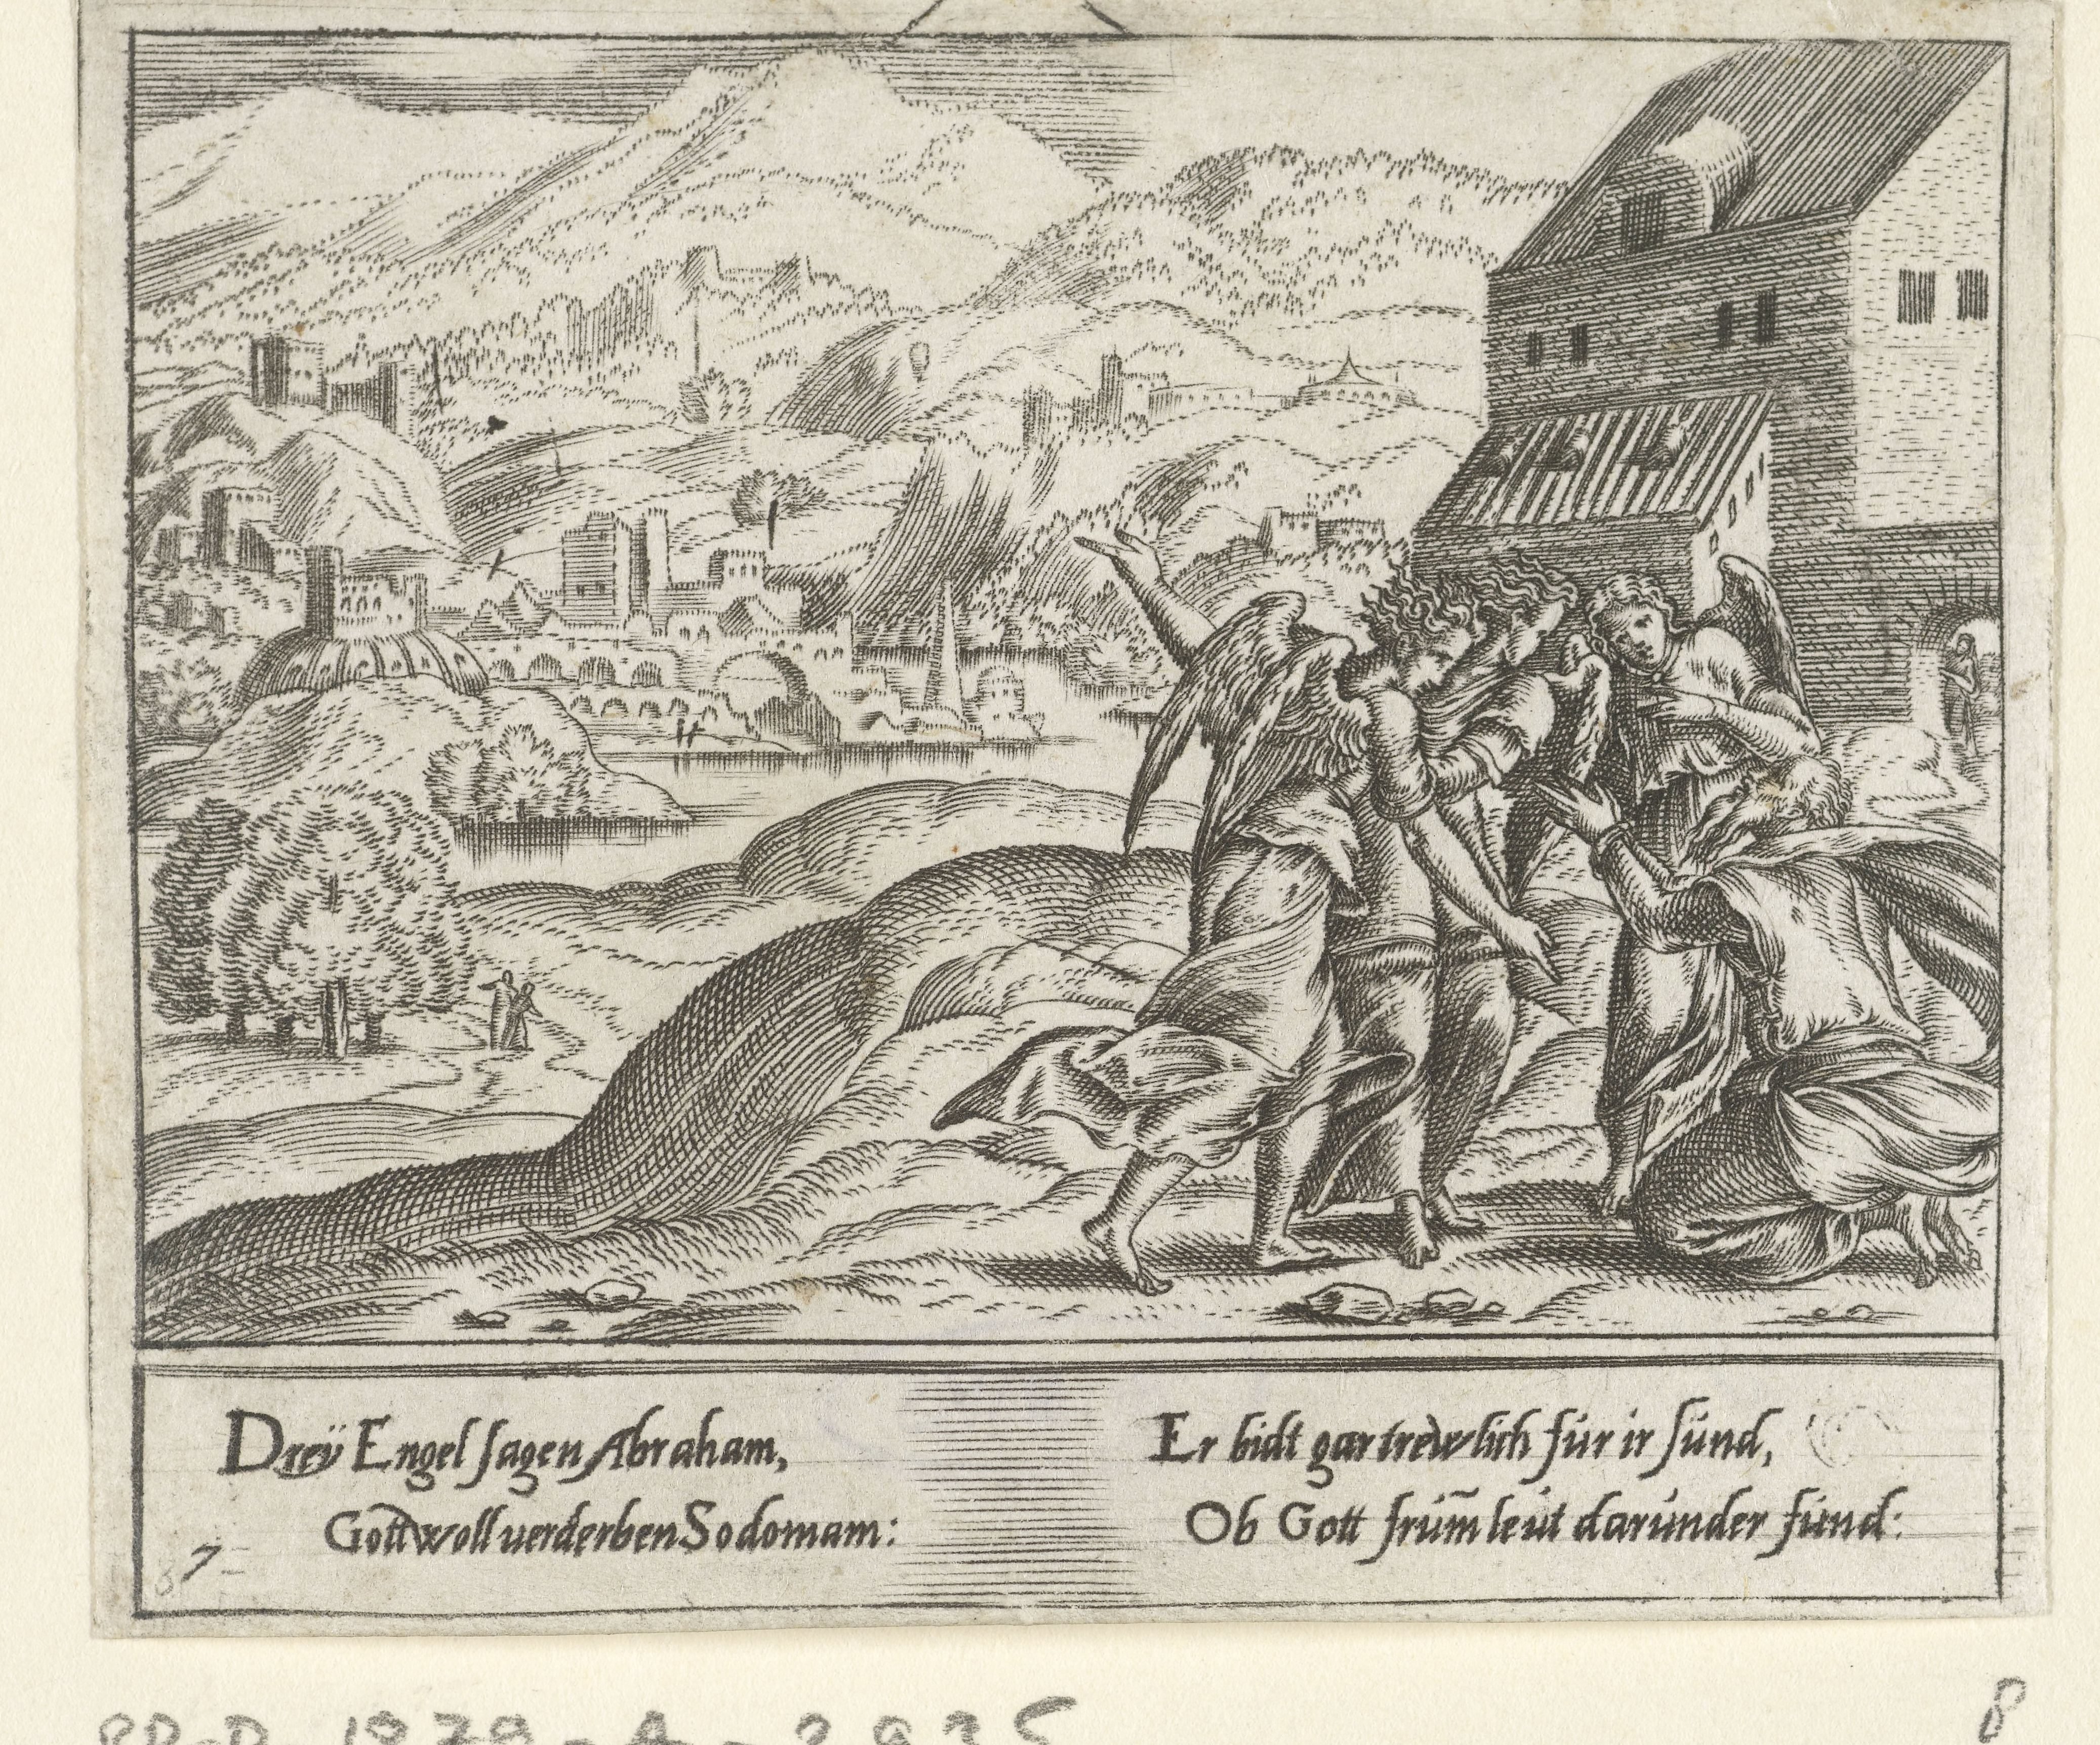 Dreÿ Engel sagen Abraham,
Gott woll verderben Sodomam:
Er bidt gar trewlich für ir sünd,
Ob Gott frum̃ leüt darunder fünd:
7
8